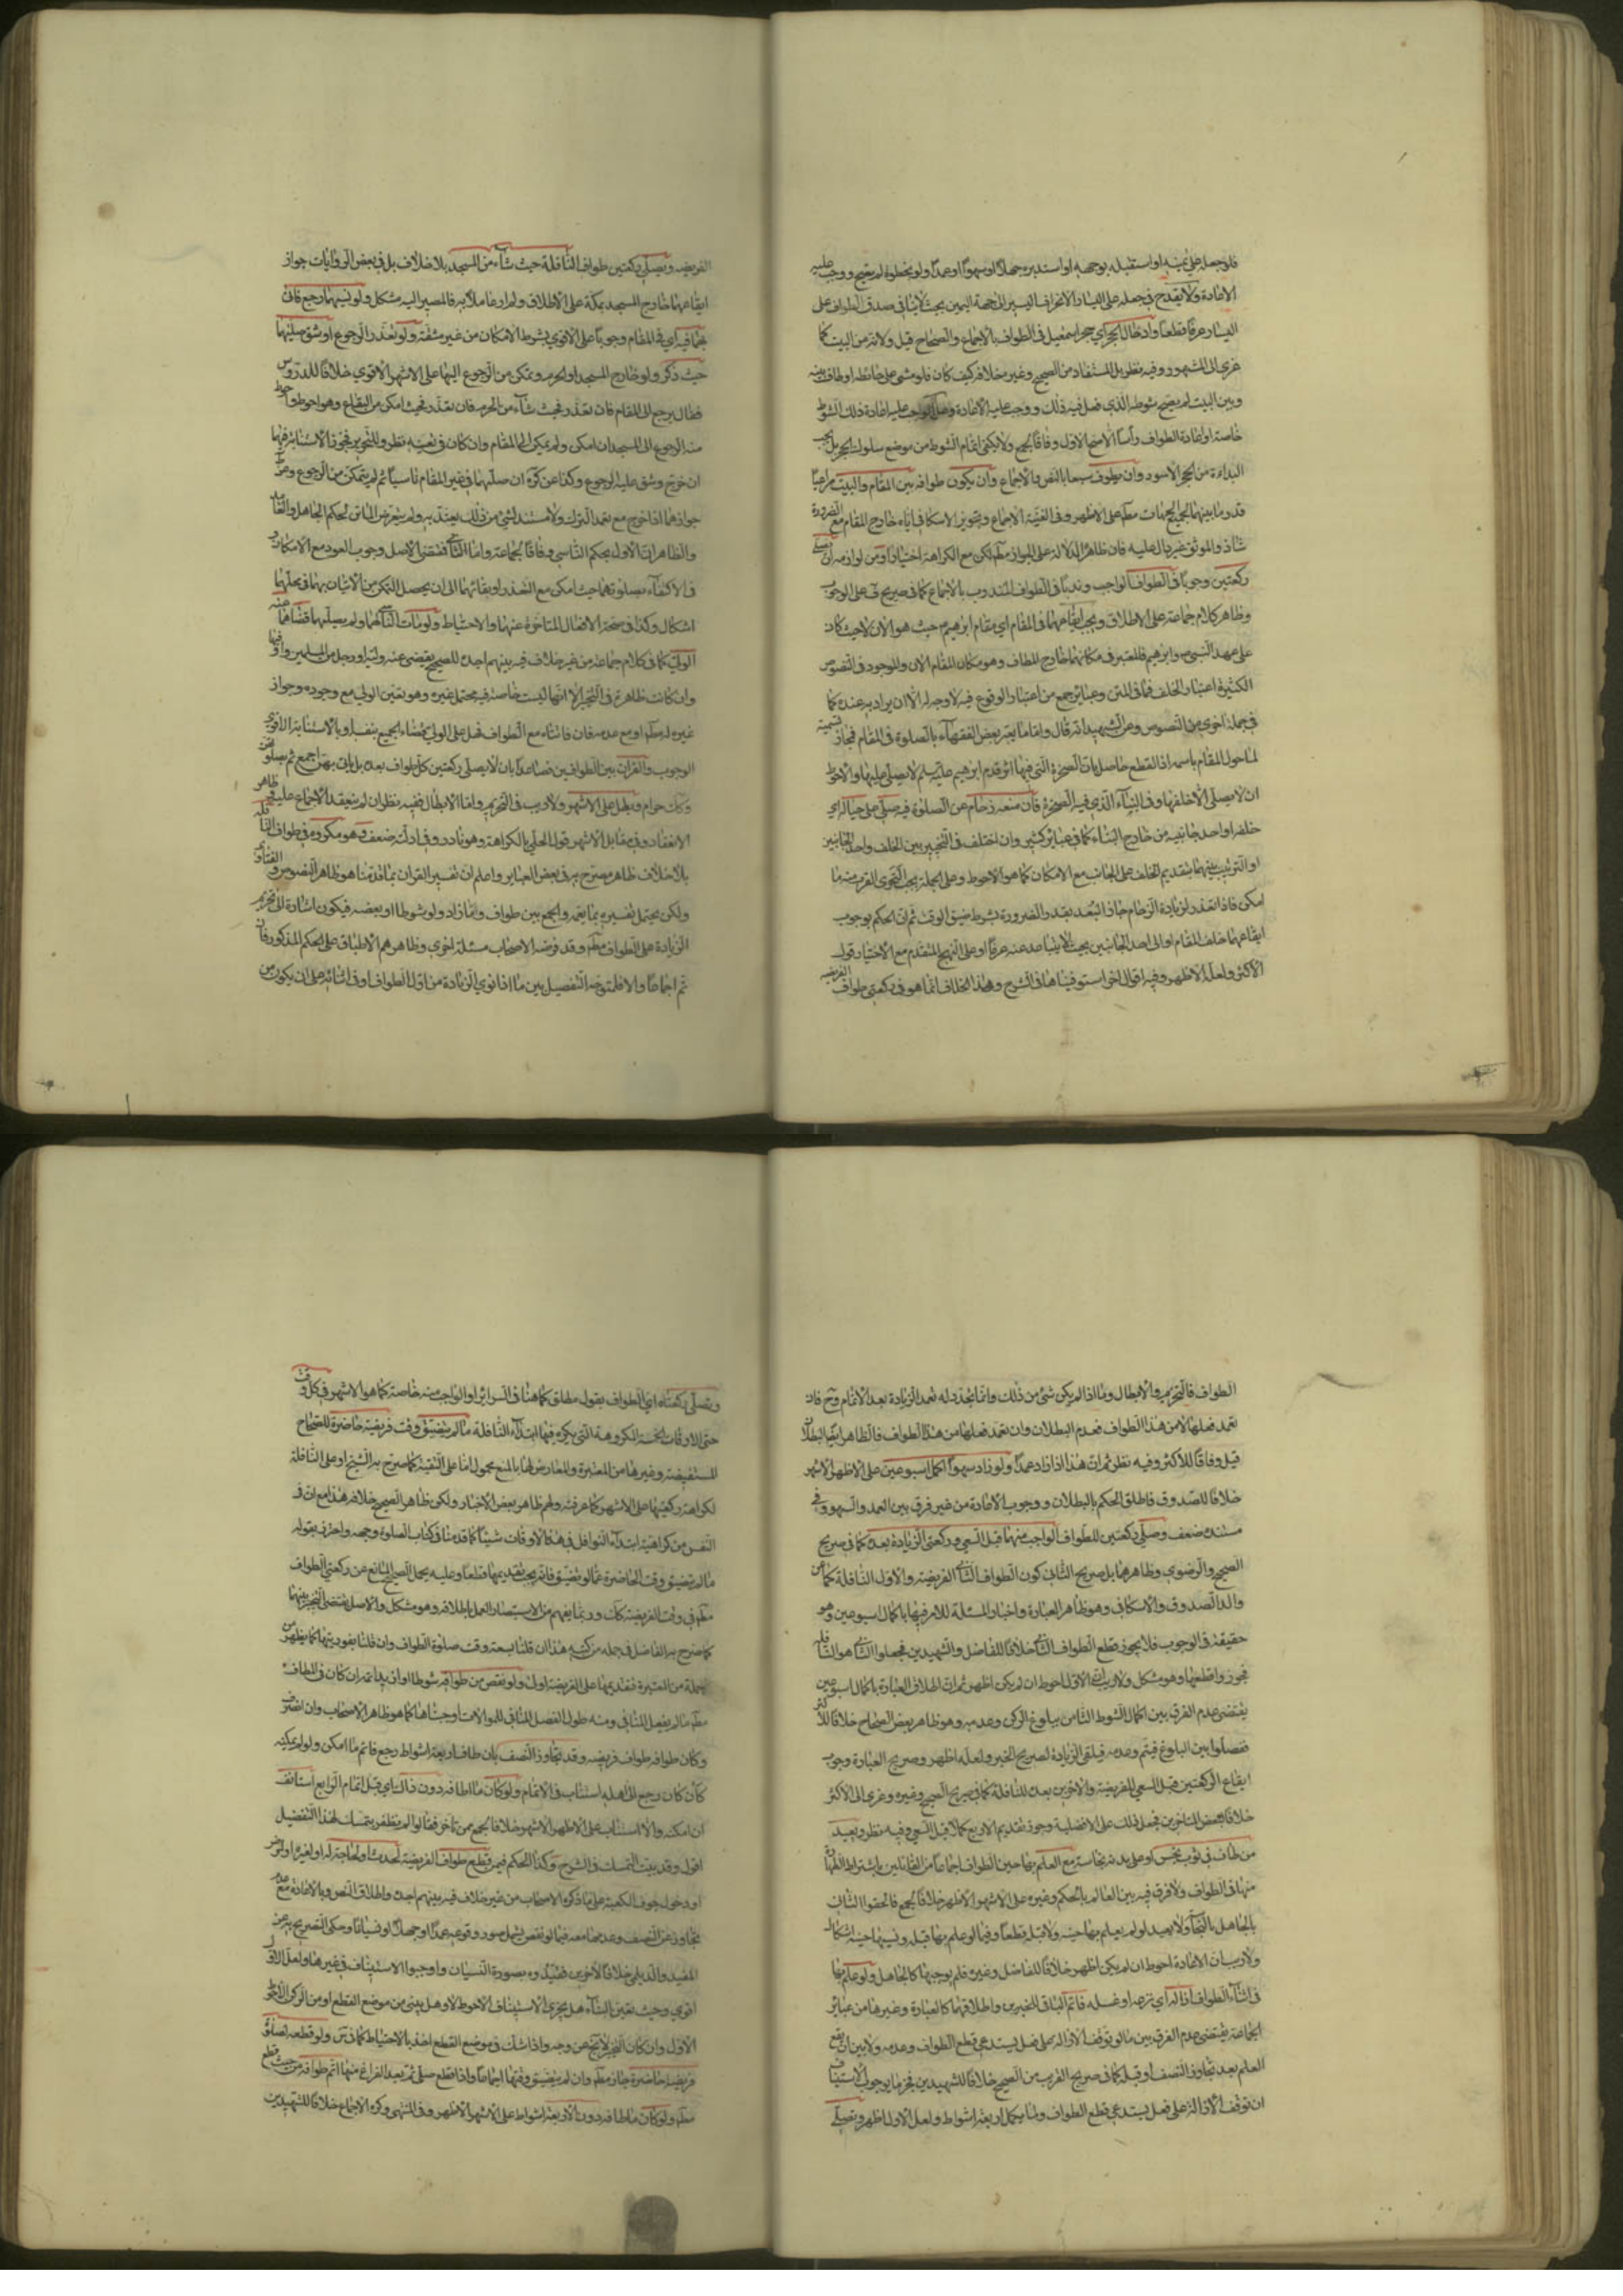 فلو جعله على يمينه او استقبله بوجهه او استدبره جهلا او سهوا او عمدا ولو بخطوة لم يصح ووجب عليه
الاعادة ولا يقدح في جعله على اليسار الانحراف اليسير الى جهة اليمين بحيث لا ينافي صدق الطواف على
اليسار عرفا قطعا وادخال الحجر اي حجر اسمعيل في الطواف بالاجماع والصحاح قيل ولانه من البيت كما
عزى الى المشهور وفيه نظر بل المستفاد من الصحيح وغيره خلافه كيف كان فلو مشى على حائطه او طاف بينه
وبين البيت لم يصح شوطه الذي فعل فيه ذلك ووجب عليه الاعادة وهل الواجب عليه اعادة ذلك الشوط
خاصة او اعادة الطواف رأسا الاصح الاول وفاقا لجمع ولا يكفي اتمام الشوط من موضع سلوك الحجر بل يجب
البداءة من الحجر الاسود وان يطوف سبعا بالنص والاجماع وان يكون طوافه بين المقام والبيت مراعيا
قدر ما بينهما لجميع الجهات مطلقا على الاظهر وفي الغنية الاجماع وتجويز الاسكافي اياه خارج المقام مع الضرورة
شاذ والموثق غير دال عليه فان ظاهره الدلالة على الجواز مطلقا لكن مع الكراهة اختيارا ومن لوازمه ان يصلي
ركعتين وجوبا في الطواف الواجب وندبا في الطواف المندوب بالاجماع كما في صريح ف على الوجوب
وظاهر كلام جماعة على الاطلاق ويجب ايقاعهما في المقام اي مقام ابرهيم حيث هو الآن لا حيث كان
على عهد النبي ص وابرهيم فالمعتبر في مكانهما خارج المطاف وهو مكان المقام الآن والموجود في النصوص
الكثيرة اعتبار الخلف فما في المتن وعبائر جمع من اعتبار الوقوع فيه لا وجه له الا ان يراد به عنده كما
في جملة اخرى من النصوص وعن الشهيد انه قال واما ما يعتبر بعض الفقهاء بالصلوة في المقام فمجاز تسمية
لما حول المقام باسمه اذ القطع حاصل بان الصخرة التي فيها اثر قدم ابرهيم عليه السلم لا يصلى عليها والاحوط
ان لا يصلي الا خلفها وفي البناء الذي فيه الصخرة فان منعه زحام عن الصلوة فيه صلى على حياله اي
خلفه او احد جانبيه من خارج البناء كما في عبائر كثير وان اختلف في التخيير بين الخلف واحد الجانبين
او الترتيب بينهما بتقديم الخلف على الجانب مع الامكان كما هو الاحوط وعلى الجملة يجب التحري القرب منه ما
امكن فاذا تعذر لزيادة الزحام جاز البعد بقدر الضرورة بشرط ضيق الوقت ثم ان الحكم بوجوب
ايقاعهما خلف المقام او الى احد الجانبين بحيث لا يتباعد عنه عرفا او على النهج المتقدم مع الاختيار قول
الاكثر ولعله الاظهر وفيه اقوال اخر استوفيناها في الشرح وهذا الخلاف انما هو في ركعتي طواف الفريضة
الفريضة ويصلي ركعتين طواف النافلة حيث شاء من المسجد بلا خلاف بل في بعض الروايات جواز
ايقاعهما خارج المسجد بمكة على الاطلاق ولم ار عاملا به فالمصير اليه مشكل ولو نسيهما رجع فاتى
بهما فيه اي في المقام وجوبا على الاقوى بشرط الامكان من غير مشقة ولو تعذر الرجوع او شق صليهما
حيث ذكر ولو خارج المسجد او الحرم وتمكن من الرجوع اليها على الاشهر الاقوى خلافا للدروس
فقال يرجع الى المقام فان تعذر فحيث شاء من الحرم فان تعذر فحيث امكن من البقاع وهو احوط واحوط
منه الرجوع الى المسجد ان امكن ولم يمكن الى المقام وان كان في تعينه نظر وللتحرير فجوز الاستنابة فيهما
ان خرج وشق عليه الرجوع وكذا عن كره ان صليهما في غير المقام ناسيا ثم لم يتمكن من الرجوع وعن ط
جوازهما اذا خرج مع تعمد الترك ولا مستند لشئ من ذلك يعتد به ولم يتعرض الماتن لحكم الجاهل والعامد
والظاهر ان الاول بحكم الناسي وفاقا لجماعة واما الثاني فمقتضى الاصل وجوب العود مع الامكان و
في الاكتفاء بصلوتهما حيث امكن مع التعذر او بقائهما الى ان يحصل التمكن من الاتيان بهما في محلهما
اشكال وكذا في صحة الافعال المتاخرة عنهما والاحتياط ولو مات الناسي لهما ولم يصلهما قضاهما عنه
الولي كما في كلام جماعة من غير خلاف فيه بينهم اجده للصحيح يقضي عنه وليه او رجل من المسلمين و
وان كانت ظاهرة في التخيير الا انها ليست خاصة فيه محتمل غيره وهو تعين الولي مع وجوده وجواز
غيره له مطلقا او مع عدمه فان فاتتاه مع الطواف فهل على الولي قضاء الجميع بنفسه او بالاستنابة الاقوى
الوجوب والقران بين الطوافين فصاعدا بان لا يصلي ركعتين كل طواف بعده بل ياتي بهن اجمع ثم يصلي
الانعقاد وفي مقابل الاشهر قول الحلي بالكراهة وهو نادر وفي ادلته ضعف وهو مكروه في طواف النافلة
بلا خلاف ظاهر مصرح به في بعض العبائر واعلم ان تفسير القران بما قدمنا هو ظاهر النصوص والفتاوى
ولكن يحتمل تفسيره بما يعم والجمع بين طواف وما زاد ولو شوطا او بعضه فيكون اشارة الى تحريم
الزيادة على الطواف مطلقا وقد فرضه الاصحاب مسئلة اخرى وظاهرهم الاطباق على الحكم المذكور فان
تم اجماعا والا فلتوجه التفصيل بين ما اذا نوى الزيادة من اول الطواف او في اثنائه على ان يكون من
الطواف فالتحريم والابطال وما اذا لم يكن شئ من ذلك وانما تجدد له تعمد الزيادة بعد الاتمام وح فان
تعمد فعلها لا من هذا الطواف فعدم البطلان وان تعمد فعلها من هذا الطواف فالظاهر ايضا البطلان
قيل وفاقا للاكثر وفيه نظر ثم ان هذا اذا زاد عمدا ولو زاد سهوا اكمل اسبوعين على الاظهر الاشهر
خلافا للصدوق فاطلق الحكم بالبطلان ووجوب الاعادة من غير فرق بين العمد والسهو وفي
مستنده ضعف وصلى ركعتين للطواف الواجب منهما قبل السعي وركعتي الزيادة بعده كما في صريح
الصحيح والرضوي وظاهرهما بل صريح الثاني كون الطواف الثاني الفريضة والاول النافلة كما عن
والد الصدوق والاسكافي وهو ظاهر العبارة واخبار المسئلة للامر فيها باكمال اسبوعين وهو
حقيقة في الوجوب فلا يجوز قطع الطواف الثاني خلافا للفاضل والشهيدين فجعلوا الثاني هو النافلة
فجوزوا قطعها وهو مشكل ولا ريب ان الاول احوط ان لم يكن اظهر ثم ان اطلاق العبارة باكمال اسبوعين
يقتضي عدم الفرق بين اكمال الشوط الثامن ببلوغ الركن وعدمه وهو ظاهر بعض الصحاح خلافا للاكثر
ففصلوا بين البلوغ فيتم وعدمه فيلقى الزيادة لصريح الخبر ولعله اظهر وصريح العبارة وجوب
ايقاع الركعتين قبل السعي للفريضة والاخرين بعده للنافلة كما في صريح الصحيح وغيره وعزى الى الاكثر
خلافا لبعض المتاخرين فجعل ذلك على الافضلية وجوز تقديم الاربع كملا قبل السعي وفيه نظر ويعيد
من طاف في ثوب نجس او على بدنه نجاسة مع العلم بها حين الطواف اجماعا من القائلين باشتراط الطهارة
منها في الطواف ولا فرق فيه بين العالم بالحكم وغيره على الاشهر الاظهر خلافا لجمع فالحقوا الثاني
بالجاهل بالنجاسة ولا يعيد لو لم يعلم بها حينه ولا قبل قطعا وفيما لو علم بها قبله ونسيها حينه اشكال
ولا ريب ان الاعادة احوط ان لم يكن اظهر خلافا للفاضل وغيره فلم يوجبها كالجاهل ولو علم بها
في اثناء الطواف ازاله اي نزعه او غسله فاتم الباقي للخبرين واطلاقهما كالعبارة وغيرها من عبائر
الجماعة يقتضي عدم الفرق بين ما لو توقف الازالة على فعل يستدعي قطع الطواف وعدمه ولا بين ان يقع
العلم بعد تجاوز النصف او قبله كما في صريح القريب من الصحيح خلافا للشهيدين فجزما بوجوب الاستيناف
ان توقف الازالة على فعل يستدعي قطع الطواف ولما يكمل اربعة اشواط ولعل الاول اظهر ويصلي
ويصلى ركعتاه اي الطواف بقول مطلق كما هنا وفي السرائر او الواجب منه خاصة كما هو الاشهر في كل وقت
حتى الاوقات الخمسة المكروهة التي يكره فيها ابتداء النافلة ما لم يتضيق وقت فريضة حاضرة للصحاح
المستفيضة وغيرها من المعتبرة والمعارض لها بالمنع محمول اما على التقية كما صرح به الشيخ او على النافلة
لكراهة ركعتيها على الاشهر كما عرفته ولهم ظاهر بعض الاخبار ولكن ظاهر الصحيح خلافه هذا مع ان في
النفس من كراهية ابتداء النوافل في هذه الاوقات شيئا كما قدمنا في كتاب الصلوة وجهه واحترز بقوله
ما لم يتضيق وقت الحاضرة عما لو تضيق فانه يجب تقديمها قطعا وعليه يحمل الصحيح المانع عن ركعتي الطواف
كما صرح به الفاضل في جملة من كتبه هذا ان قلنا بسعة وقت صلوة الطواف وان قلنا بفوريتها كما يظهر من
جملة من المعتبرة فتقديمها على الفريضة اولى ولو نقص من طوافه شوطا او ازيد اتمه ان كان في المطاف
مطلقا ما لم يفعل المنافي ومنه طول الفصل المنافي للموالات اوجبناها كما هو ظاهر الاصحاب وان انصرف
وكان طوافه طواف فريضة وقد تجاوز النصف بان طاف اربعة اشواط رجع فاتم ما امكن ولو لم يمكنه
كأن كان رجع الى اهله استناب في الاتمام ولو كان ما طافه دون ذلك اي قبل اتمام الرابع استانف
ان امكنه والا استناب على الاظهر الاشهر خلافا لجمع ممن تاخر فقالوا لم نظفر بتمسك لهذا التفصيل
اقول وقد بينت التمسك في الشرح وكذا الحكم فيمن قطع طواف الفريضة لحدث او لحاجة له او لغيره او لمرض
او دخول جوف الكعبة على ما ذكره الاصحاب من غير خلاف فيه بينهم اجده واطلاق النص وبالاعادة مع عدم
تجاوز عن النصف وعدمها معه فيما لو نقص يشمل صور وقوعه عمدا او جهلا او نسيانا وحكى التصريح به عن
المفيد والديلمي خلافا لاخرين فقيدوه بصورة النسيان واوجبوا الاستيناف في غيرها ولعل الاول
اقوى وحيث تعين البناء هل يجزي الاستيناف الاحوط لا وهل يبنى من موضع القطع او من الركن الاحوط
الاول وان كان التخيير لا يخ عن وجه واذا شك في موضع القطع اخذ بالاحتياط كما في س ولو قطعه لصلوة
فريضة حاضرة جاز مطلقا وان لم يتضيق وقتها اجماعا واذا قطع صلى ثم بعد الفراغ منها اتم طوافه من حيث قطع
مطلقا ولو كان ما طافه دون الاربعة اشواط على الاشهر الاظهر وفي المنتهى وكره الاجماع خلافا للشهيدين